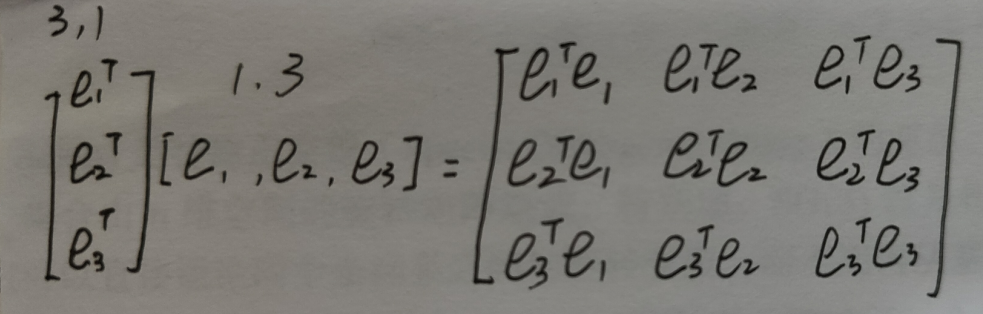 3,1
1.3
[e₁ᵀ
e₂ᵀ
e₃ᵀ] [e₁,e₂,e₃] = [e₁ᵀe₁ e₁ᵀe₂ e₁ᵀe₃
e₂ᵀe₁ e₂ᵀe₂ e₂ᵀe₃
e₃ᵀe₁ e₃ᵀe₂ e₃ᵀe₃]